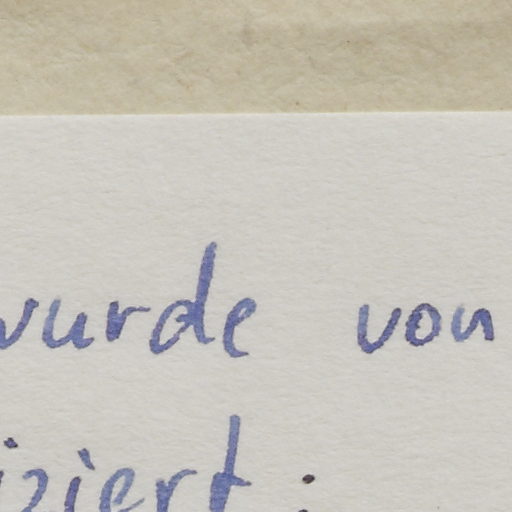 wurde von
iziert.